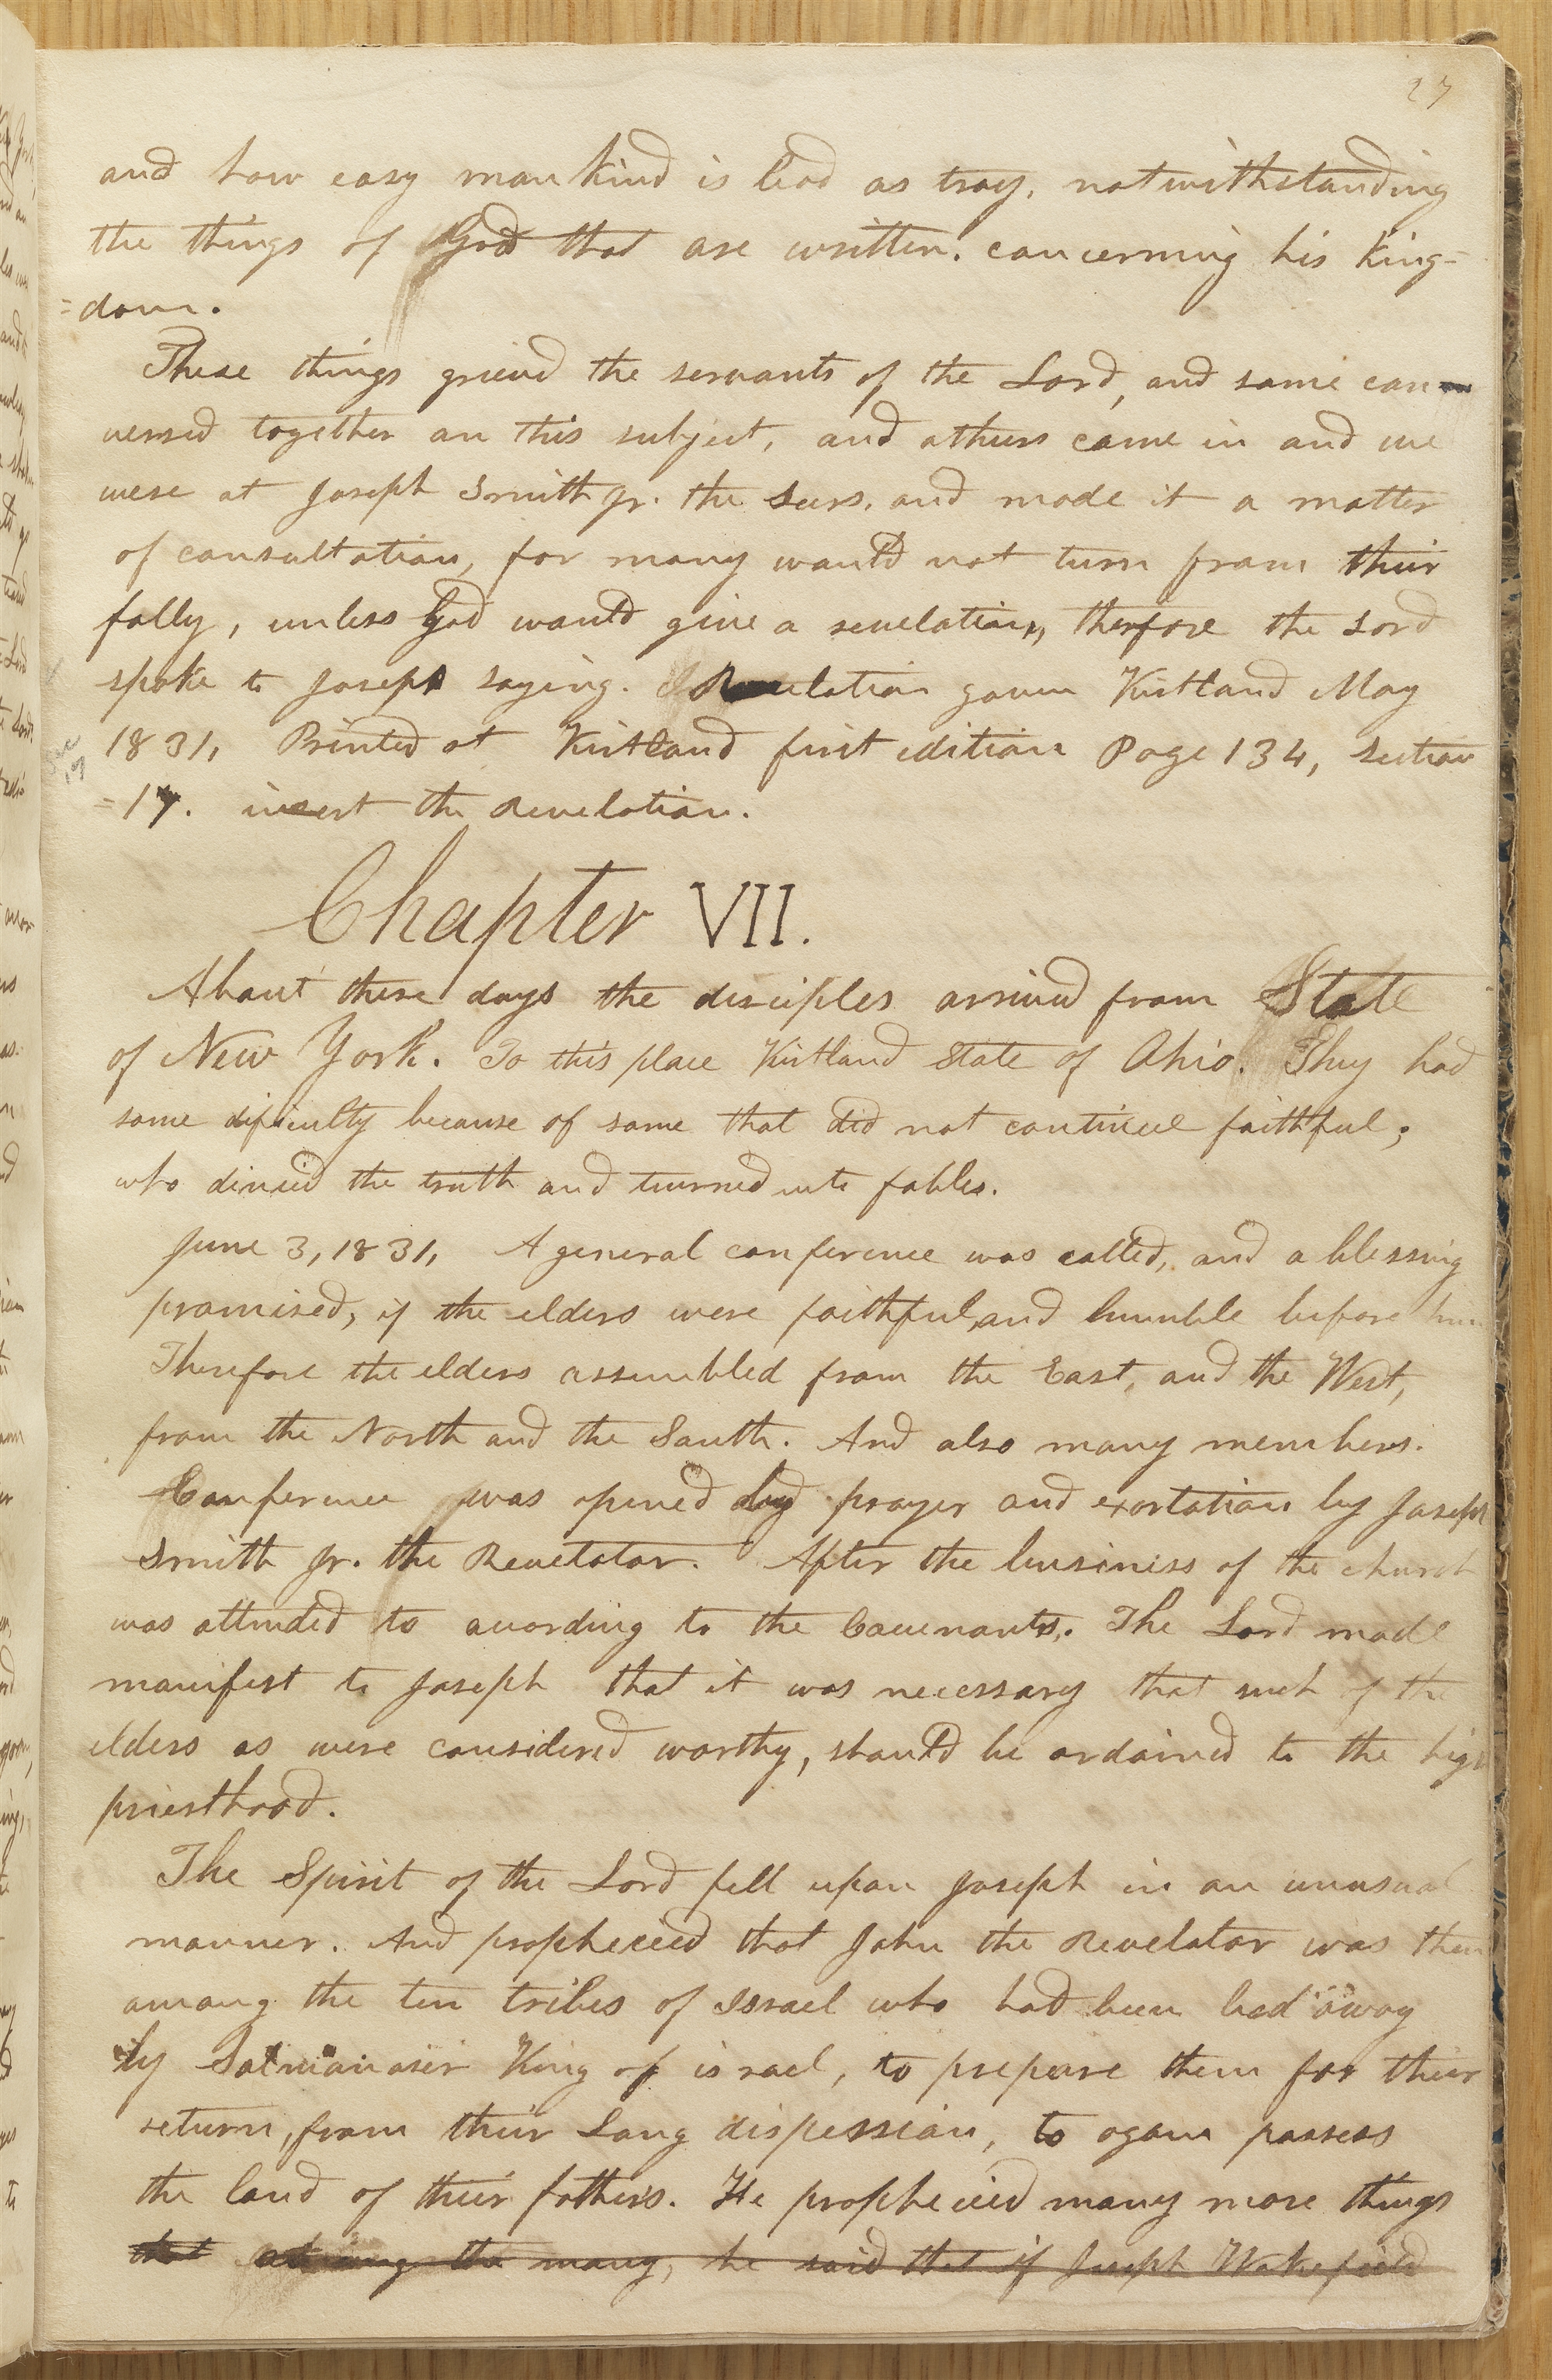 27
and how easy mankind is lead as tray, notwithstanding
the things of God that are written. concerning his King=
=dom.
These things grieved the servants of the Lord, and some con-
versed together on this subject, and others came in and we
were at Joseph Smith jr. the seers. and made it a matter
of consultation, for many would not turn from their
folly, unless God would give a revelation, therefore the Lord
spoke to Joseph saying. Revelation gavin Kirtland May
1831, Printed at Kirtland first edition Page 134, section
=17. insert the Revelation.
Chapter VII.
About these days the disciples arrived from State
of New York. To this place Kirtland State of Ohio. They had
some dificulty because of some that did not continue faithful;
who divied the truth and turned into fables.
June 3, 1831, A general conference was called, and a blessing
promised, if the elders were faithful, and humble before him
Therefore the elders assembled from the East, and the West,
from the North and the South. And also many members.
Conference was opened by prayer and exortation by Joseph
Smith jr. the Revelator. After the business of the church
was attended to according to the Covenants. The Lord made
manifest to Joseph that it was necessary that such of the
elders as were considered worthy, should be ordained to the high
priesthood.
The Spirit of the Lord fell upon Joseph in an unusual
manner. And prophecied that John the Revelator was then
among the ten tribes of Israel who had been lead away
by Salmanaser King of israel, to prepare them for their
return, from their Long dispession, to again possess
the land of their fathers. He prophecied many more things
that among the many, he said that if Joseph Wakefield